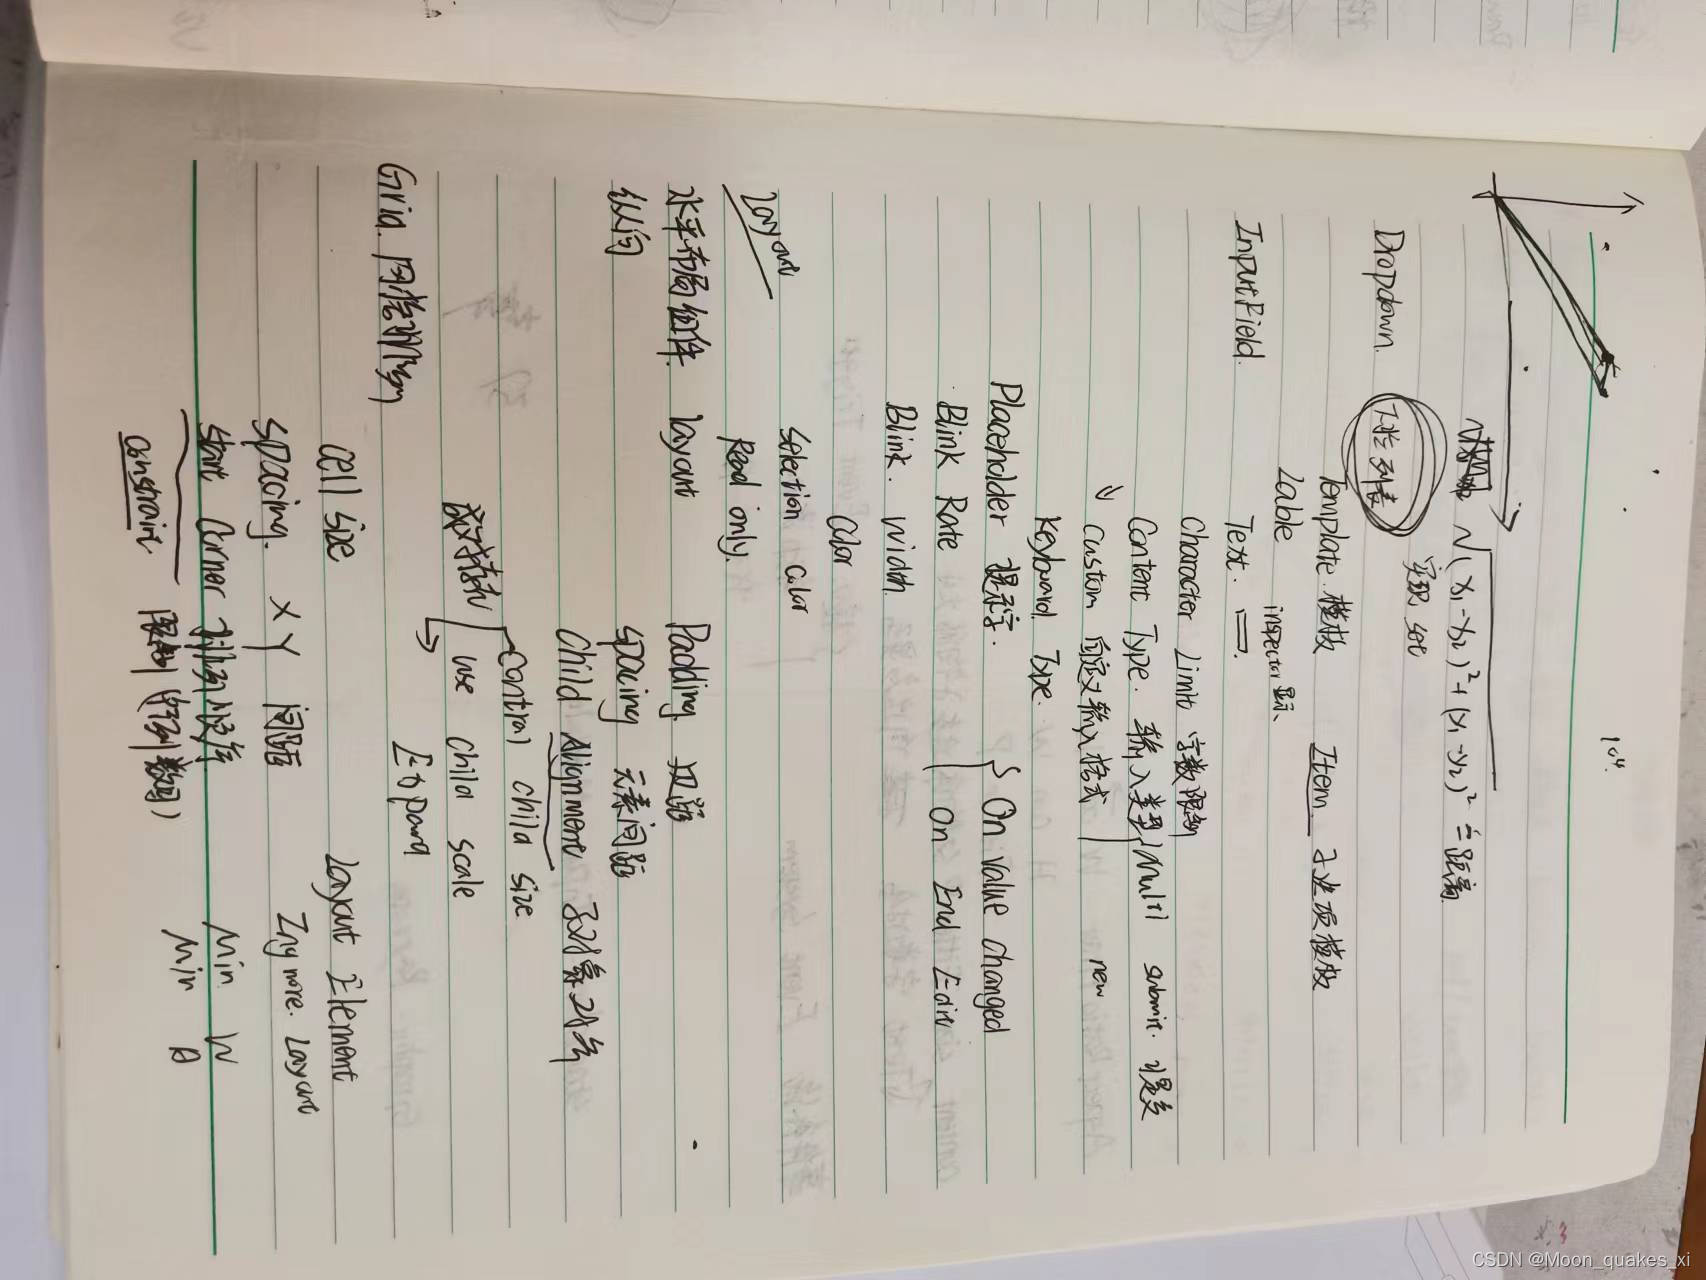 10.4.
√(x₁-x₂)²+(x₁-y₂)² = 距离
实现 set
Dropdown. 下拉列表
Template 模板 Item 子选项模板
Lable inspector 显示
InputField. Text.
Character Limit 字数限制
Content Type. 输入类型 Multi submit. 提交
Custom 自定义输入格式 new
Keyboard Type.
Placeholder 提示字. On Value changed
Blink Rate On End Edit
Blink. width
Color
selection color
Layout Read only.
水平布局组件. layout Padding 边距
纵向 spacing 元素间距
Child Alignment 子对象对齐
Control child size
use child scale
Expand
Grid. 网格
cell size Layout Element
spacing. X Y 间距 Ignore. Layout
start Corner 排列顺序 Min W
constraint 限制 (行列数词) Min
CSDN @Moon_quakes_xi